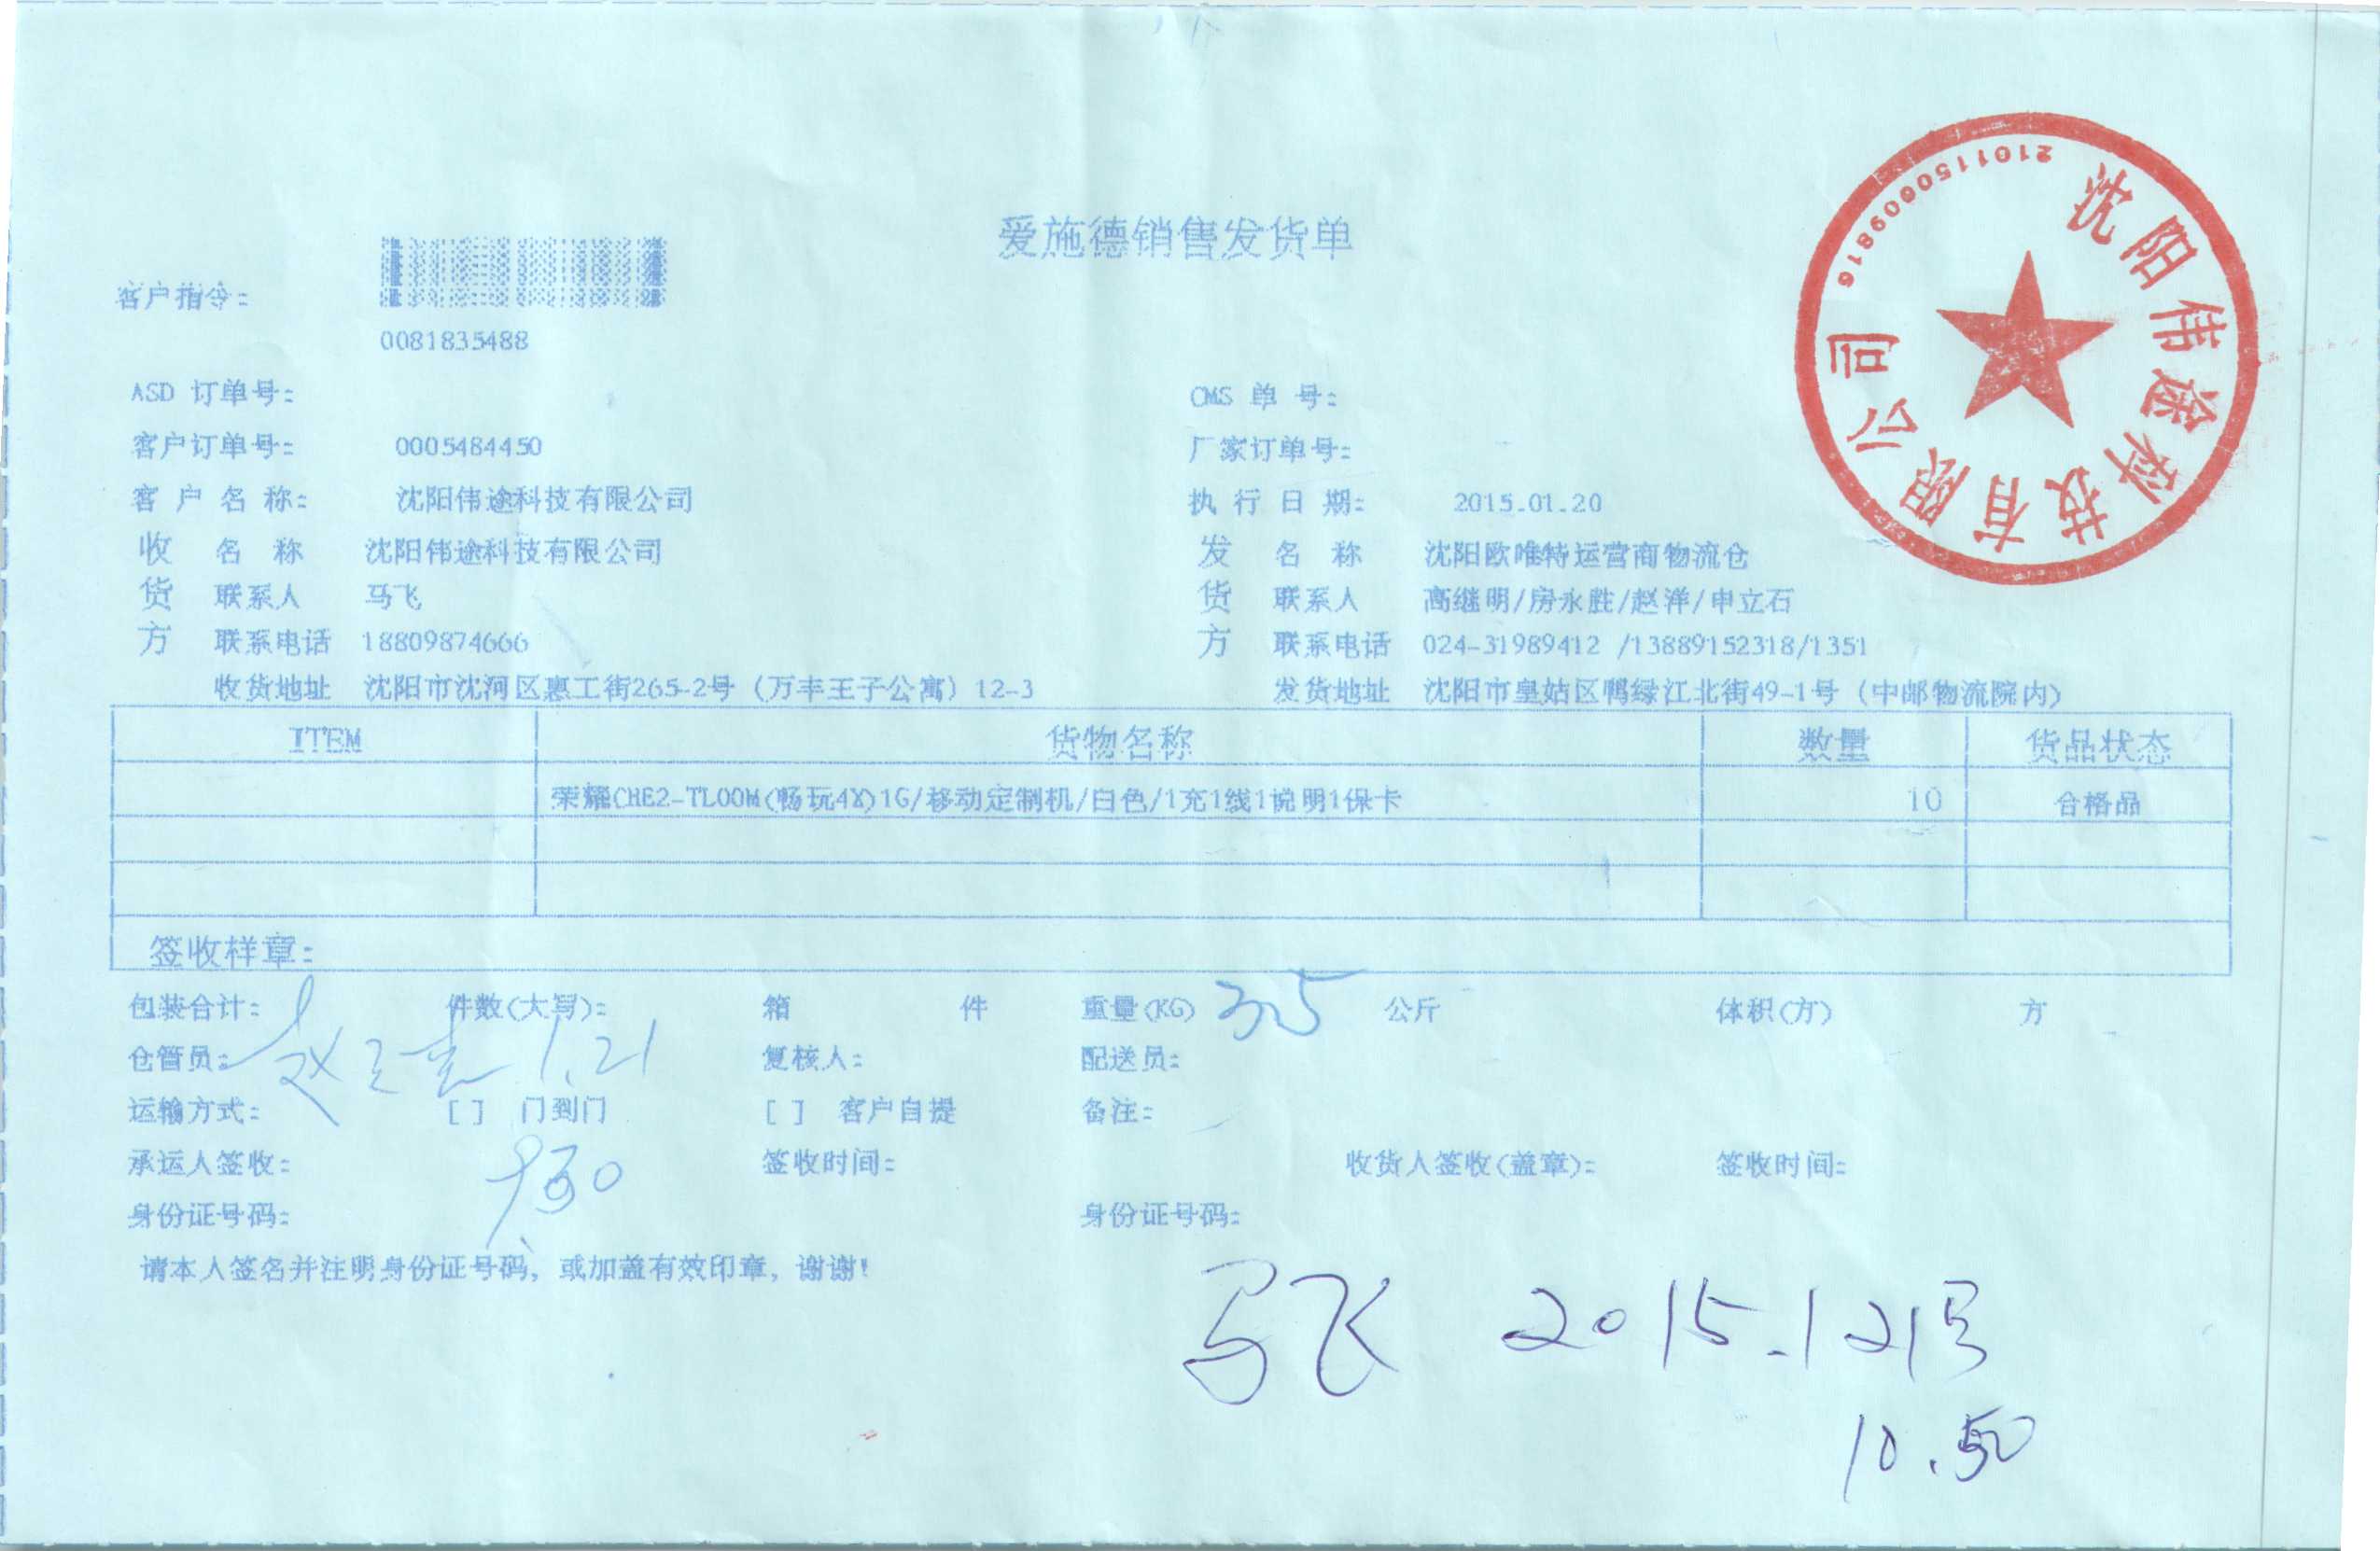 爱施德销售发货单
客户指令:
0081835488
ASD 订单号: CMS 单 号:
客户订单号: 0005484450 厂家订单号:
客 户 名 称: 沈阳伟途科技有限公司 执 行 日 期: 2015.01.20
收 名 称 沈阳伟途科技有限公司 发 名 称 沈阳欧唯特运营商物流仓
货 联系人 马飞 货 联系人 高继明/房永胜/赵洋/申立石
方 联系电话 18809874666 方 联系电话 024-31989412 /13889152318/1351
收货地址 沈阳市沈河区惠工街265-2号（万丰王子公寓）12-3 发货地址 沈阳市皇姑区鸭绿江北街49-1号（中邮物流院内）
ITEM 货物名称 数量 货品状态
荣耀CHE2-TL00M(畅玩4X)1G/移动定制机/白色/1充1线1说明1保卡 10 合格品
签收样章:
包装合计: 件数(大写): 箱 件 重量(KG) 公斤 体积(方) 方
仓管员: 1.21 复核人: 配送员:
运输方式: [ ] 门到门 [ ] 客户自提 备注:
承运人签收: 签收时间: 收货人签收(盖章): 签收时间:
身份证号码: 身份证号码:
请本人签名并注明身份证号码，或加盖有效印章，谢谢!
马飞 2015.1 21号
10.50
沈阳伟途科技有限公司
2101150609816